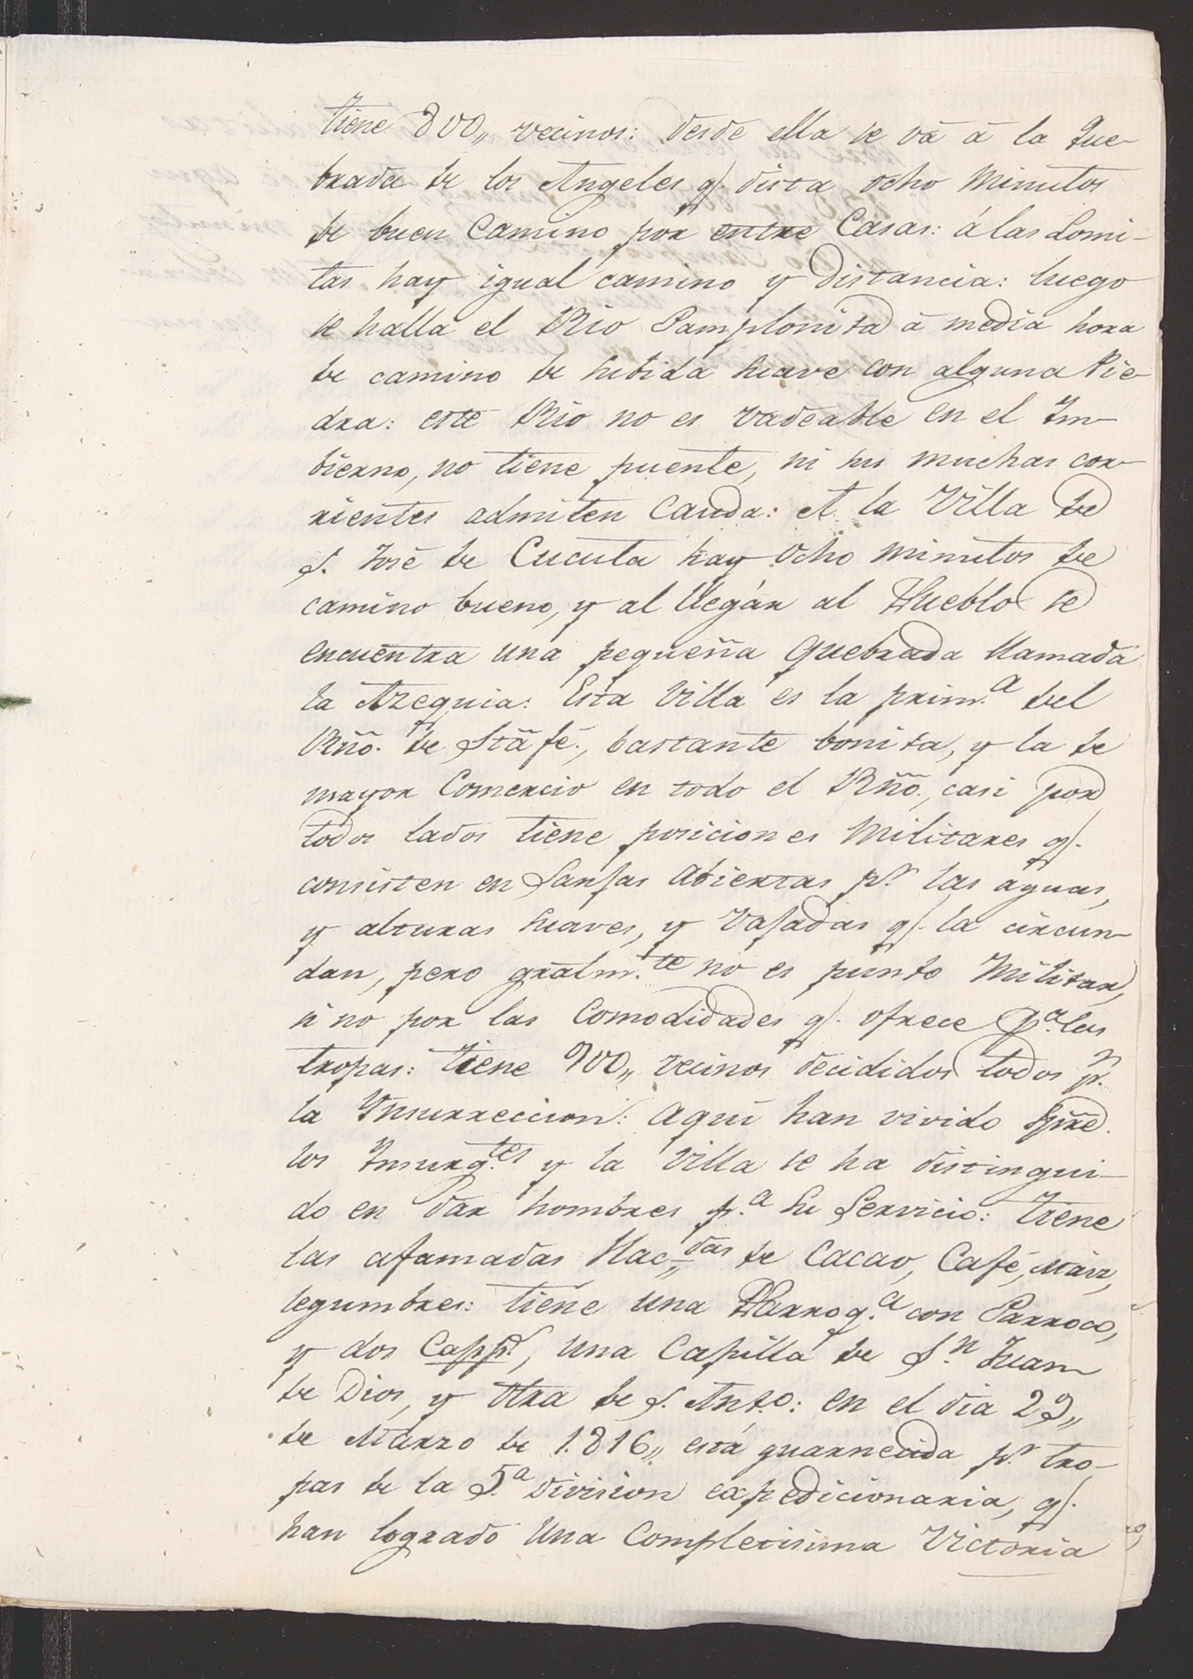 tiene 800,, vecinos: desde ella se vá á la Que-
brada de los Angeles q.e dista ocho Minutos
de buen Camino por entre Casas: á las Lomi-
tas hay igual camino y distancia: luego
se halla el Rio Pamplonita á media hora
de camino de subida suave con alguna Pie-
dra: este Rio no es vadeable en el Im-
bierno, no tiene puente, ni sus muchas cor-
rientes admiten Canda: A la Villa de
S. José de Cucuta hay ocho minutos de
camino bueno, y al llegár al Pueblo se
encuentra una pequeña quebrada llamada
la Azequia: Esta Villa es la prim.a del
Rño. de Stafé., bastante bonita, y la de
mayor Comercio en todo el Rño., casi por
todos lados tiene posiciones Militares q.e
consisten en Sanjas abiertas p.r las aguas,
y alturas suaves, y vajadas q.e la circun-
dan, pero gralm.te no es punto Militar,
si no por las Comodidades q.e ofrece p.a las
tropas: tiene 900,, vecinos decididos todos p.r
la Insurreccion: aqui han vivido spre.
los Insurg.tes y la Villa se ha distingui-
do en dar hombres p.a su Servicio: tiene
las afamadas Hac.das de Cacao, Café, Maiz,
legumbres: tiene una Parroq.a con Parroco,
y dos Capp.s, una Capilla de S.n Juan
de Dios, y otra de S. Ant.o: en el dia 29,,
de Marzo de 1816,, está guarnecida p.r tro-
pas de la 5.a Division expedicionaria, q.e
han logrado una Completisima Victoria